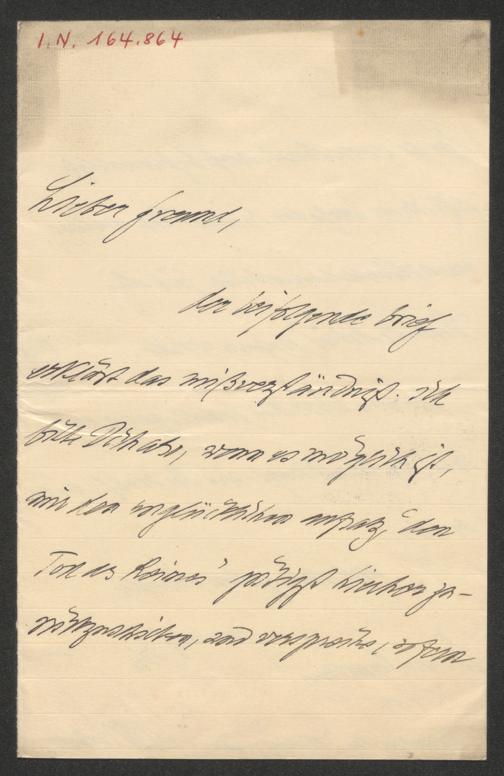 I.N. 164.864
Lieber freund,
der beifolgende brief
erklärt das mißverständniß. ich
bitte Dich also, wenn es möglich ist,
mir den unglücklichen aufsatz, „den
Tod des Reimes“ gütigst hierher zu-
rückzuschicken, und verspreche,